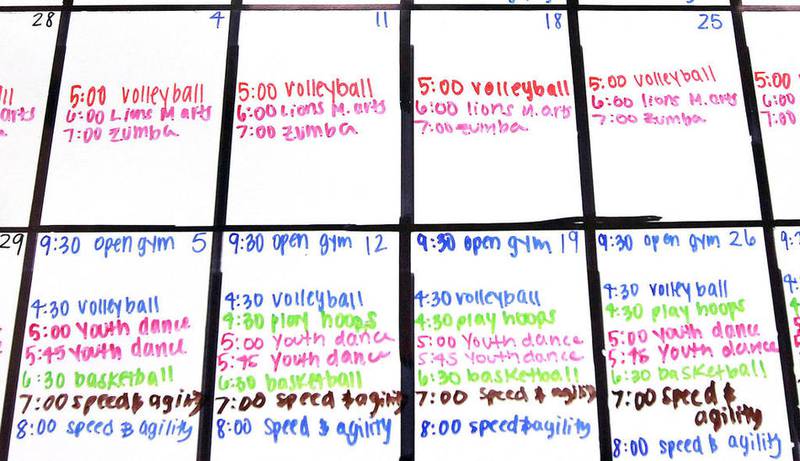 28
4
11
18
25
5:00 volleyball
6:00 Lions M arts
7:00 Zumba
5:00 volleyball
6:00 Lions M. arts
7:00 Zumba
5:00 volleyball
6:00 lions M. arts
7:00 zumba
5:00 volleyball
6:00 lions M. arts
7:00 zumba
arts
5:00
6:00
7:00
29
9:30 open gym 5
4:30 volleyball
5:00 Youth dance
5:45 Youth dance
6:30 basketball
7:00 speed & agility
8:00 speed & agility
9:30 open gym 12
4:30 volleyball
4:30 play hoops
5:00 Youth dance
5:45 Youth dance
6:30 basketball
7:00 speed & agility
8:00 speed & agility
9:30 open gym 19
4:30 volleyball
4:30 play hoops
5:00 Youth dance
5:45 Youth dance
6:30 basketball
7:00 speed & agility
8:00 speed & agility
9:30 open gym 26
4:30 volleyball
4:30 play hoops
5:00 Youth dance
5:45 Youth dance
6:30 basketball
7:00 speed &
agility
8:00 speed & agility